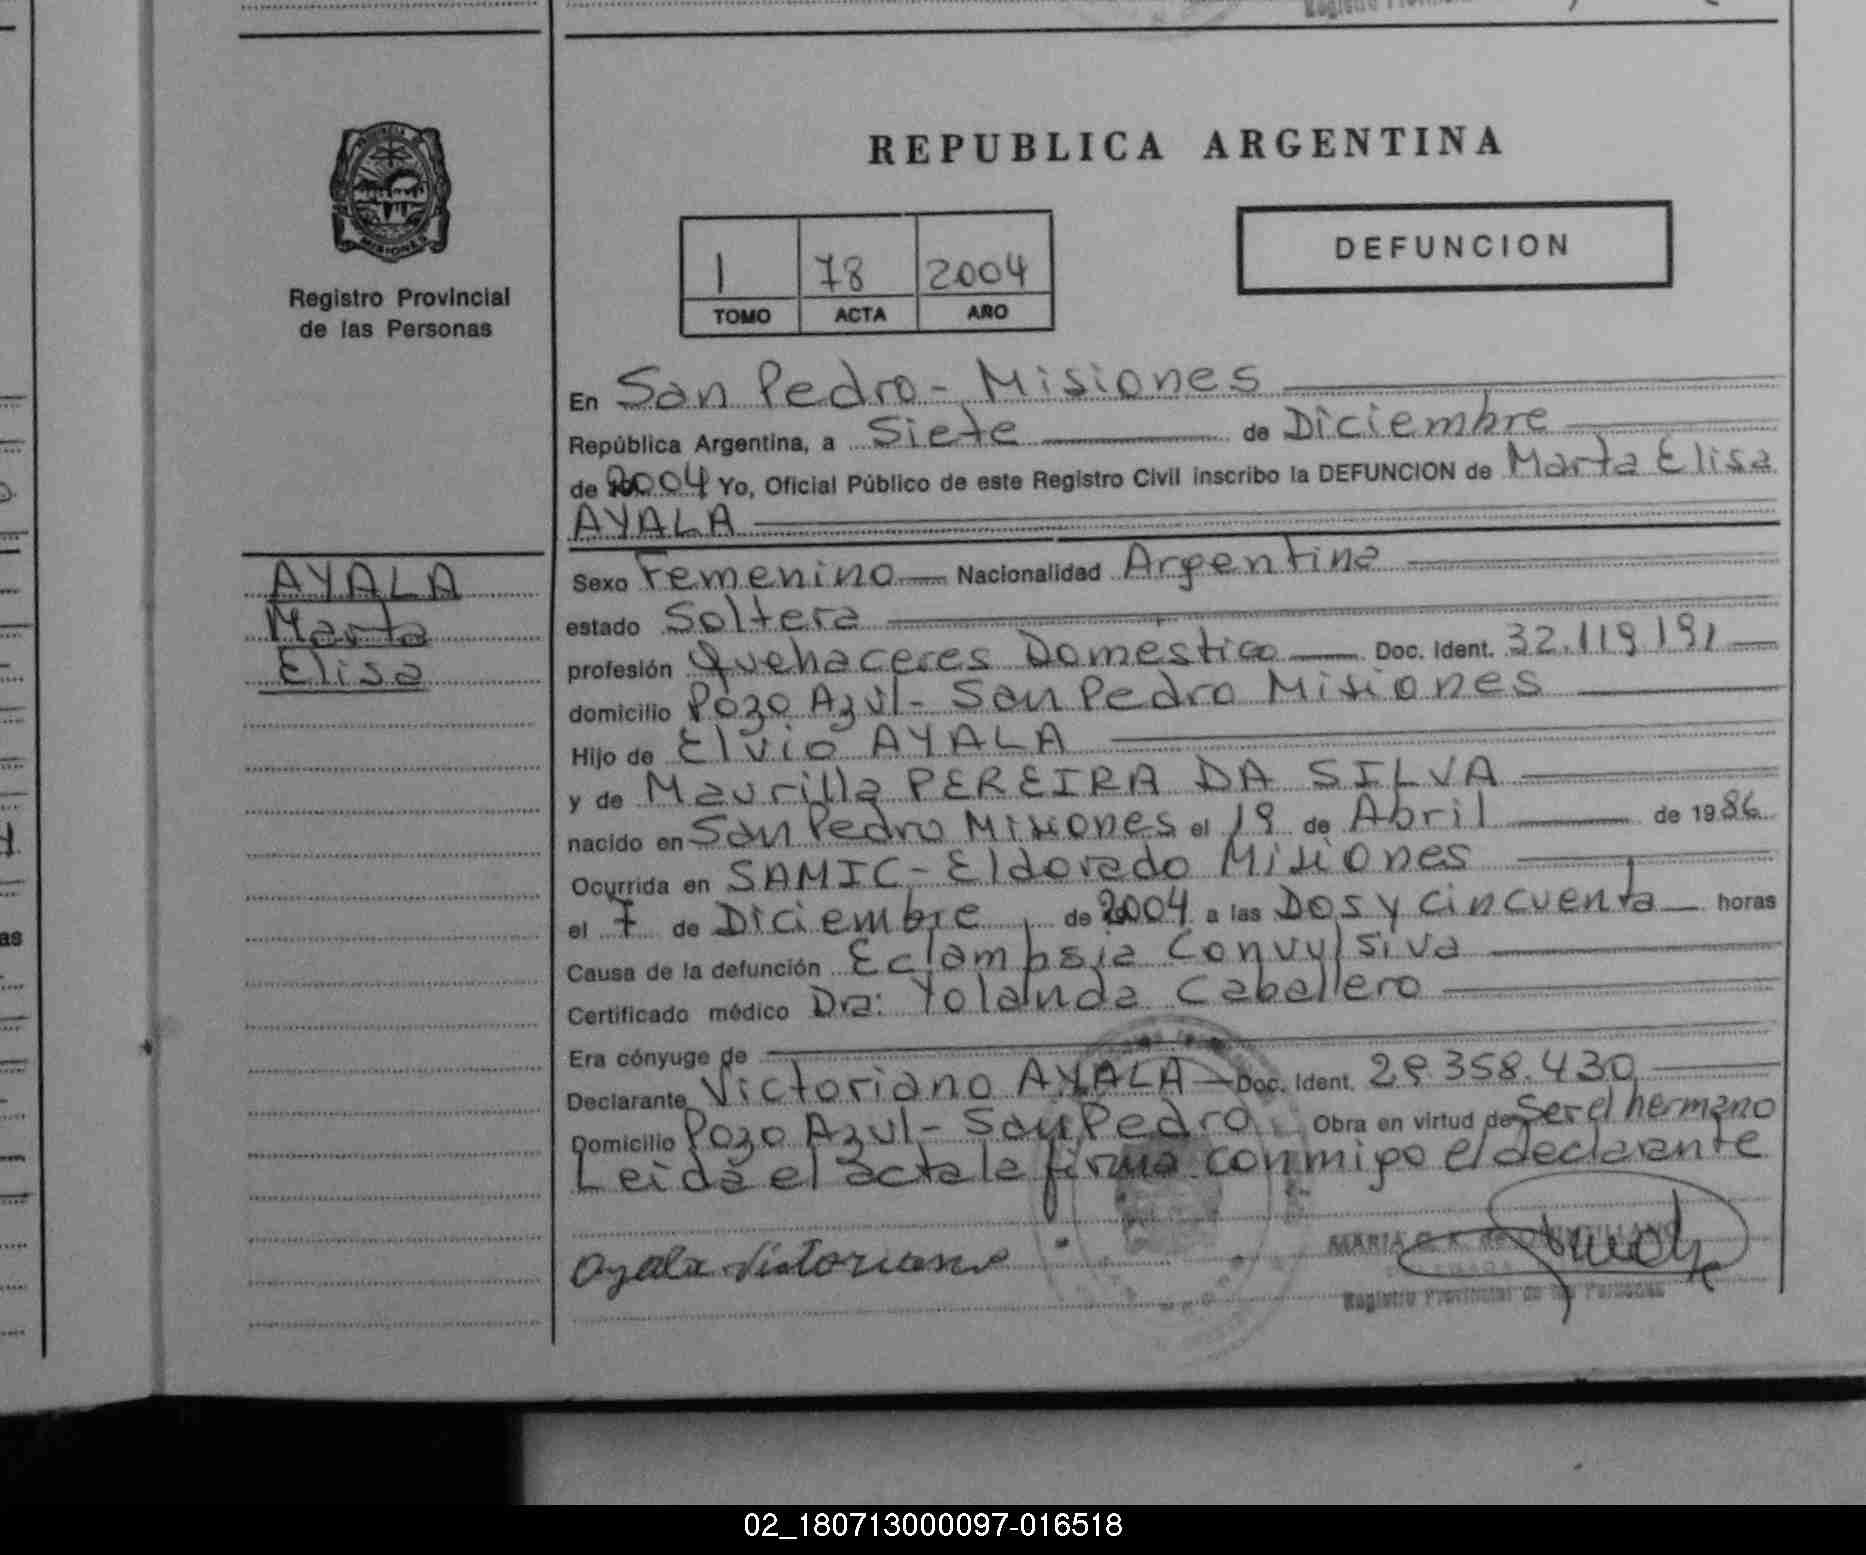 REPUBLICA ARGENTINA
PROVINCIA DE
MISIONES
Registro Provincial
de las Personas
1 78 2004
TOMO ACTA AÑO
DEFUNCION
En San Pedro - Misiones
República Argentina, a Siete de Diciembre
de 2004 Yo, Oficial Público de este Registro Civil inscribo la DEFUNCION de Marta Elisa
AYALA
AYALA
Marta
Elisa
Sexo Femenino Nacionalidad Argentina
estado Soltera
profesión Quehaceres Domestico Doc. Ident. 32.119.191
domicilio Pozo Azul - San Pedro Misiones
Hijo de Elvio AYALA
y de Maurilla PEREIRA DA SILVA
nacido en San Pedro Misiones el 19 de Abril de 1986
Ocurrida en SAMIC - Eldorado Misiones
el 7 de Diciembre de 2004 a las Dos y cincuenta horas
Causa de la defunción Eclampsia Convulsiva
Certificado médico Dra: Yolanda Caballero
Era cónyuge de
Declarante Victoriano AYALA Doc. Ident. 29.358.430
Domicilio Pozo Azul - San Pedro Obra en virtud de Ser el hermano
Leida el acta la firma conmigo el declarante
Ayala Victoriano
MARIA
Registro Provincial de las Personas
02_180713000097-016518